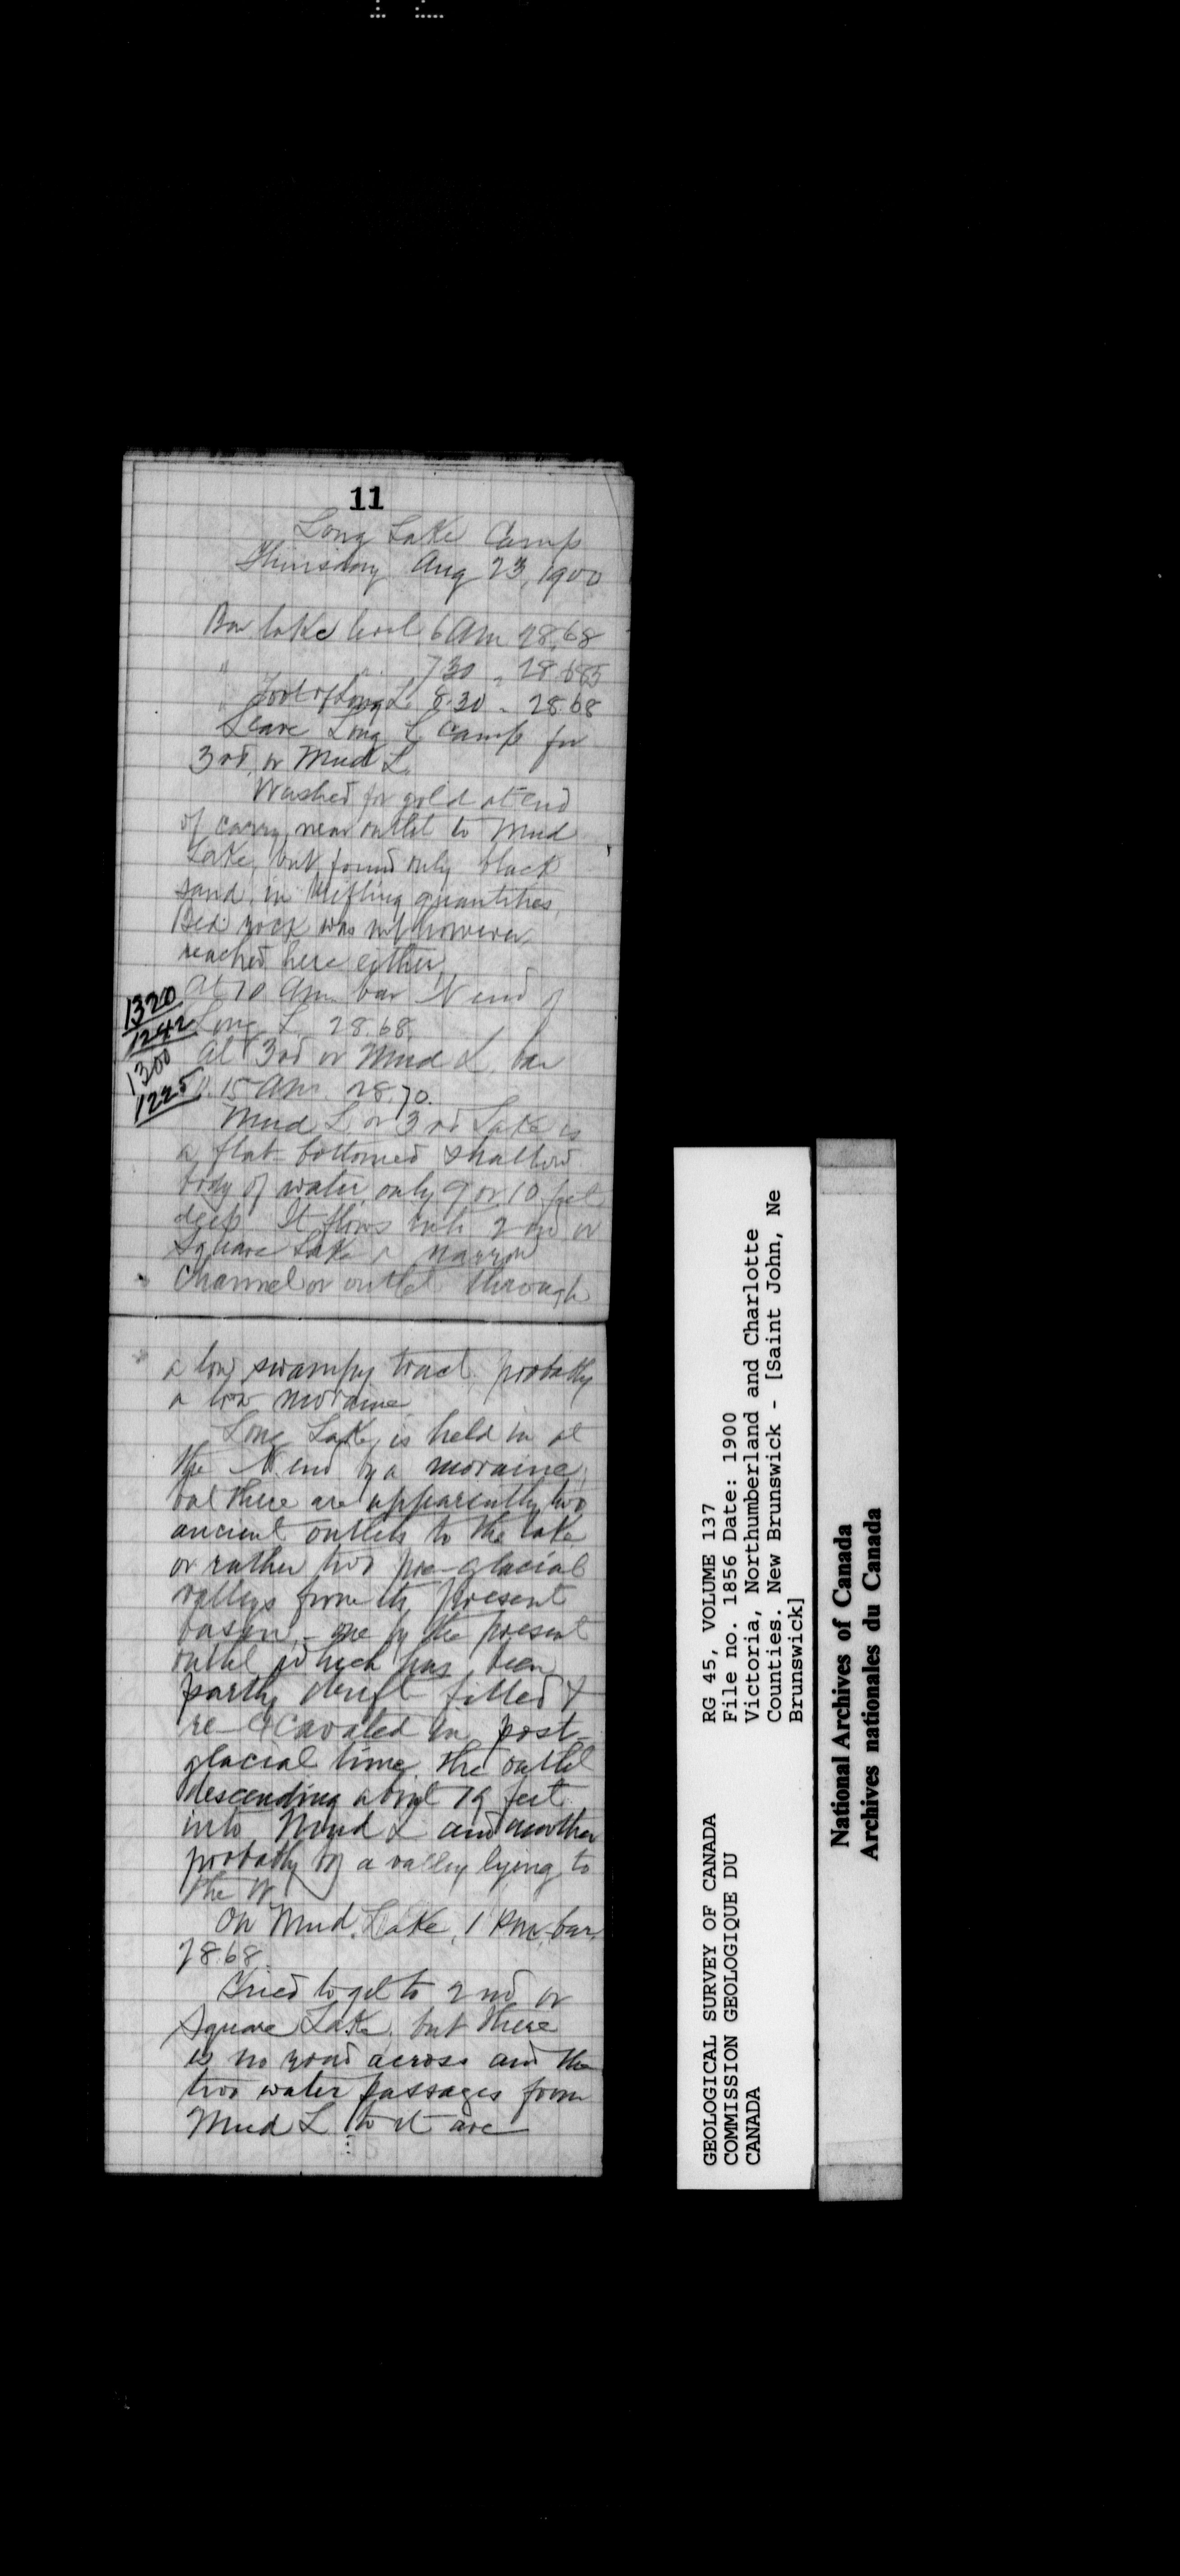 11
Long Lake Camp
Thursday Aug 23, 1900
Bar lake level 6 Am 28.68
" " 7 30 " 28.685
" Foot of Long L. 8.30 " 28.68
Leave Long L camp for
3rd, or Mud L.
Washed for gold at end
of carry, near outlet to Mud
Lake, but found only black
sand in trifling quantities,
Bed rock was not however
reached here either.
At 10 Am bar N end of
Long L. 28.68.
1320
1242
At 3rd or Mud L. bar
11.15 Am. 28.70.
1300
1225
Mud L or 3rd Lake is
a flat-bottomed shallow
body of water only 9 or 10 feet
deep It flows into 2nd or
Square Lake narrow
channel or outlet through
a low swampy tract probably
a low moraine
Long Lake is held in at
the N. end by a moraine,
but there are apparently two
ancient outlets to the lake
or rather two pre-glacial
valleys from the present
basin, - one by the present
outlet which has been
partly drift filled &
re-excavated in post-
glacial time, the outlet
descending about 19 feet
into Mud L and another
probably by a valley lying to
the W.
On Mud Lake, 1 Pm, bar.
28.68.
Tried to get to 2nd or
Square Lake, but there
is no road across and the
two water passages from
Mud L to it are
GEOLOGICAL SURVEY OF CANADA
COMMISSION GEOLOGIQUE DU
CANADA
RG 45, VOLUME 137
File no. 1856 Date: 1900
Victoria, Northumberland and Charlotte
Counties. New Brunswick - [Saint John, Ne
Brunswick]
National Archives of Canada
Archives nationales du Canada